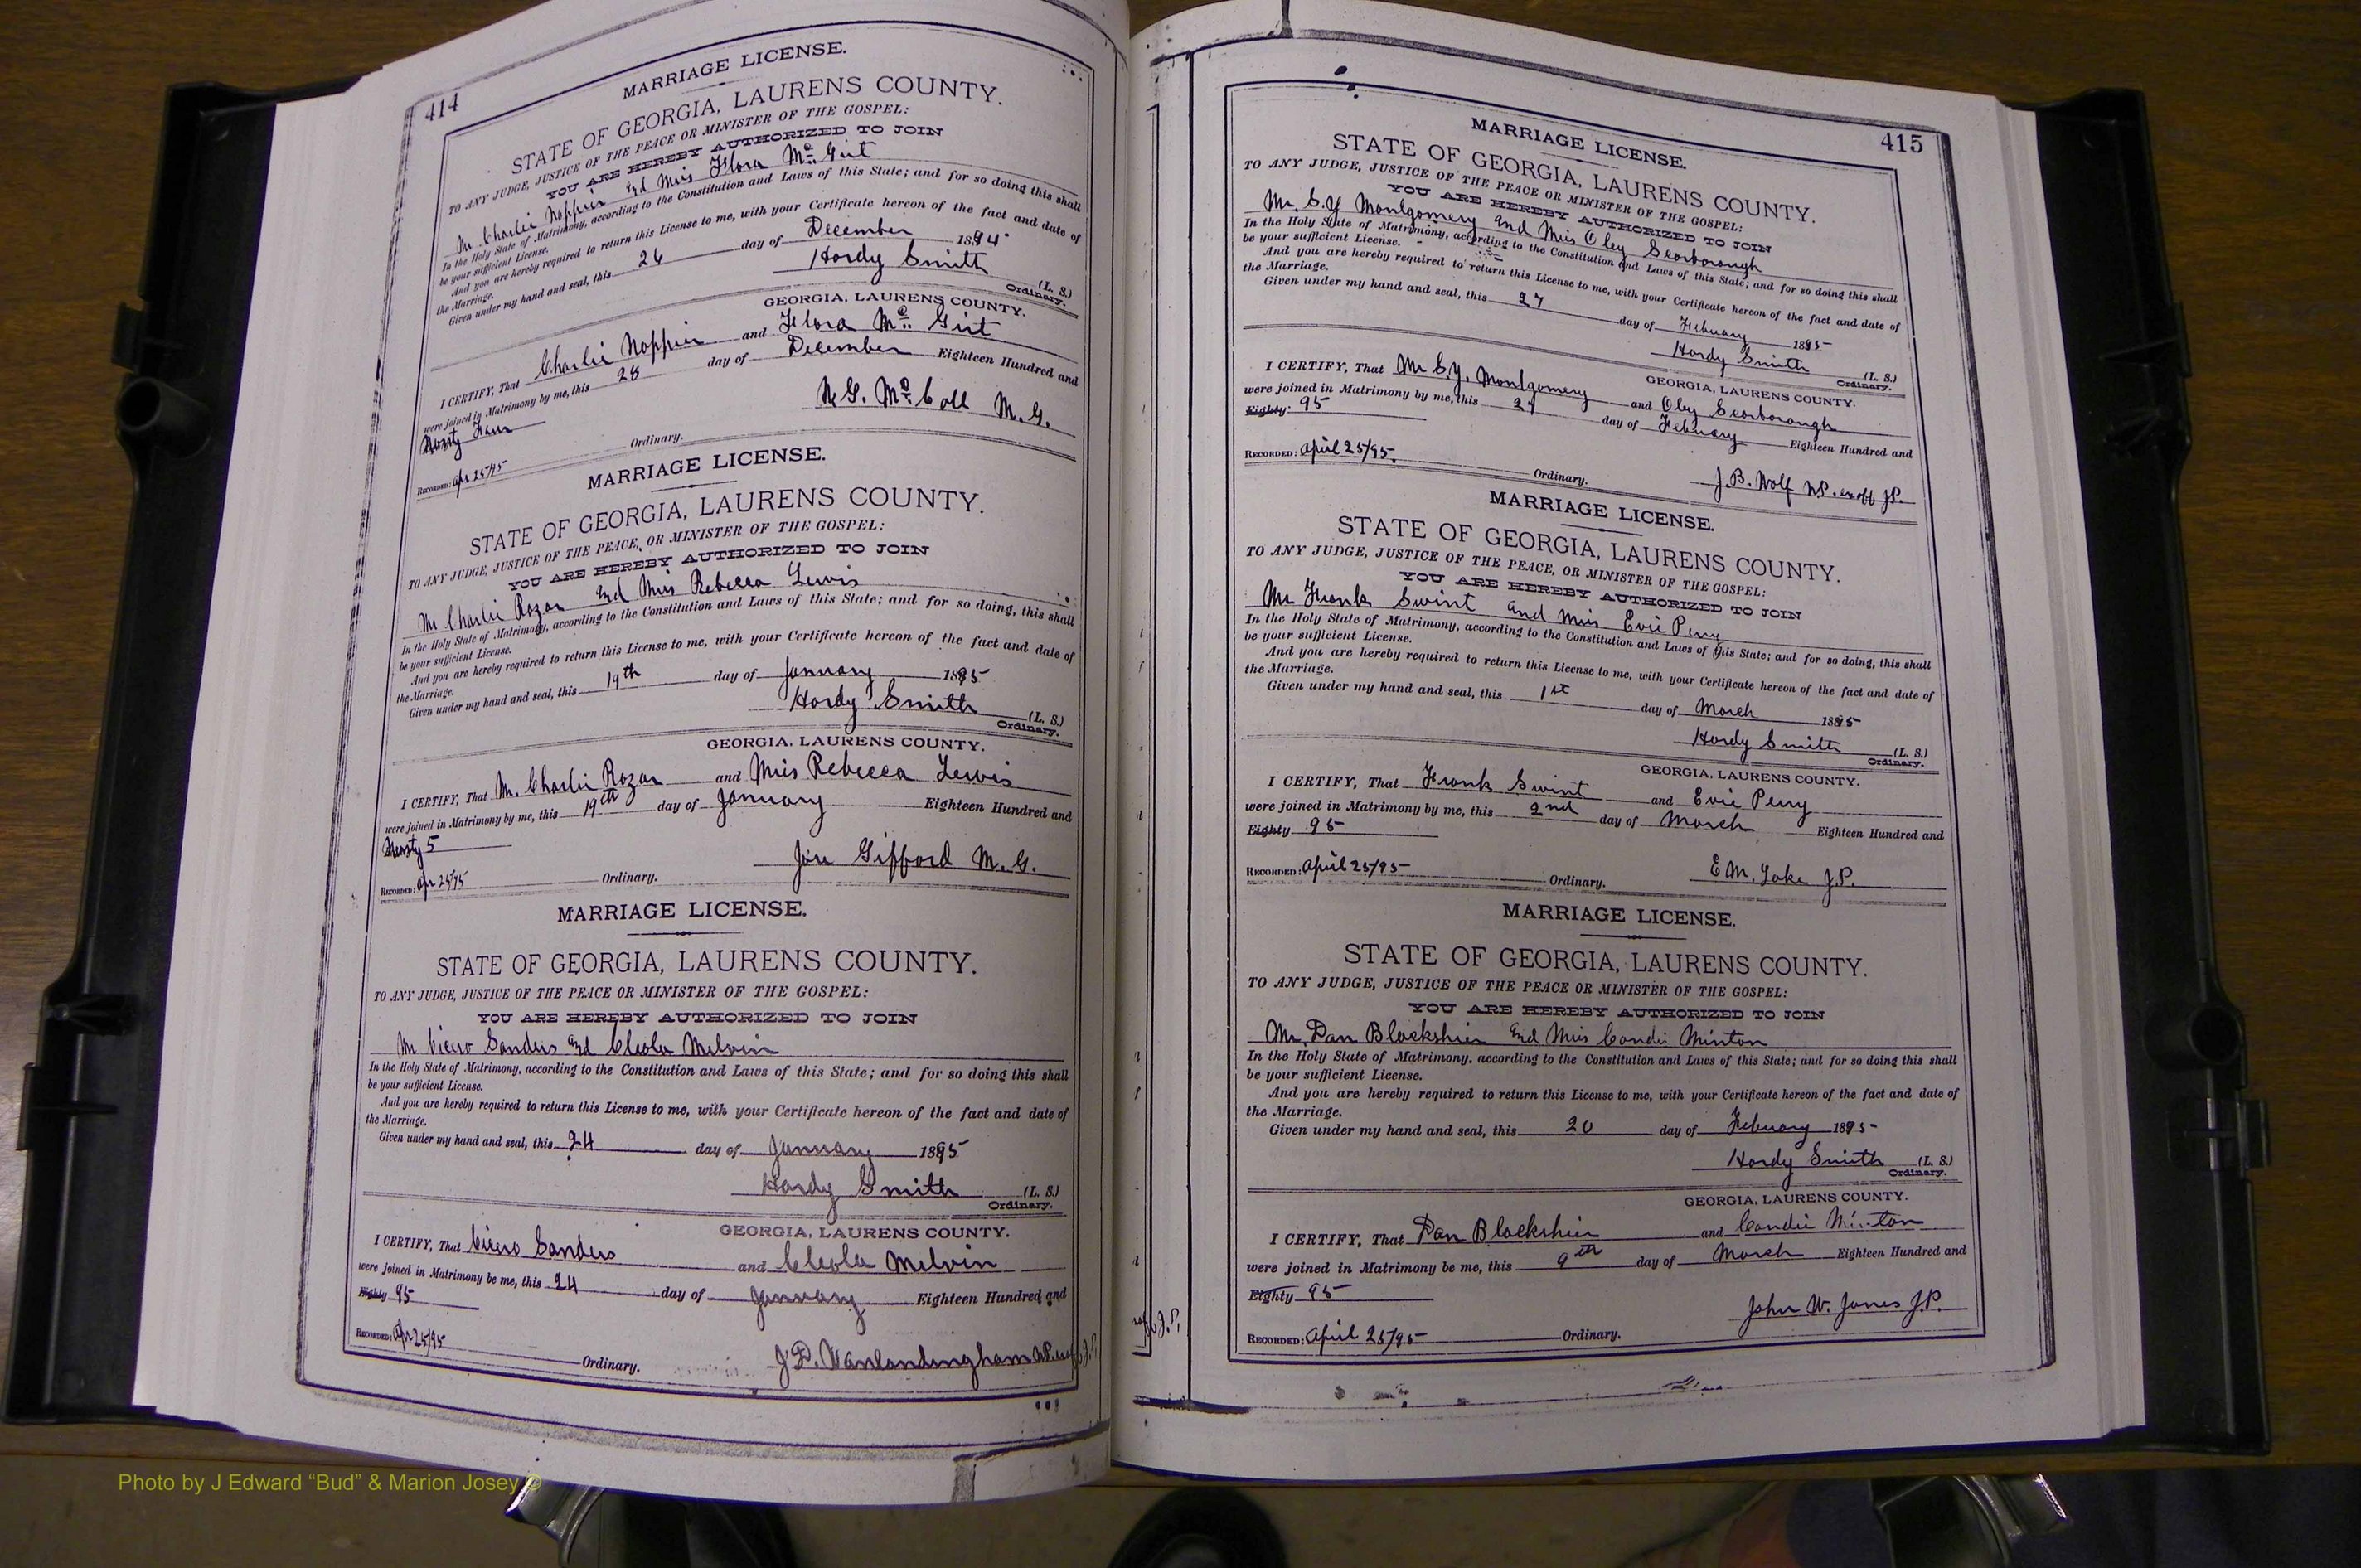 414
MARRIAGE LICENSE.
STATE OF GEORGIA, LAURENS COUNTY.
TO ANY JUDGE, JUSTICE OF THE PEACE OR MINISTER OF THE GOSPEL:
YOU ARE HEREBY AUTHORIZED TO JOIN
Mr Charlie and Miss Flora
In the Holy State of Matrimony, according to the Constitution and Laws of this State; and for so doing this shall
be your sufficient License.
And you are hereby required to return this License to me, with your Certificate hereon of the fact and date of
the Marriage.
Given under my hand and seal, this 26 day of December 1894
Hardy Smith (L. S.)
Ordinary.
GEORGIA, LAURENS COUNTY.
I CERTIFY, That Charlie and Flora
were joined in Matrimony by me, this 28 day of December Eighteen Hundred and
Ninety Four
M. G.
Recorded: Apr 25/95 Ordinary.
MARRIAGE LICENSE.
STATE OF GEORGIA, LAURENS COUNTY.
TO ANY JUDGE, JUSTICE OF THE PEACE, OR MINISTER OF THE GOSPEL:
YOU ARE HEREBY AUTHORIZED TO JOIN
Mr Charlie Rozar and Miss Rebecca Lewis
In the Holy State of Matrimony, according to the Constitution and Laws of this State; and for so doing, this shall
be your sufficient License.
And you are hereby required to return this License to me, with your Certificate hereon of the fact and date of
the Marriage.
Given under my hand and seal, this 19th day of January 1895
Hardy Smith (L. S.)
Ordinary.
GEORGIA, LAURENS COUNTY.
I CERTIFY, That Mr. Charlie Rozar and Miss Rebecca Lewis
were joined in Matrimony by me, this 19th day of January Eighteen Hundred and
Ninety 5
Joe Gifford M. G.
Recorded: Apr 25/95 Ordinary.
MARRIAGE LICENSE.
STATE OF GEORGIA, LAURENS COUNTY.
TO ANY JUDGE, JUSTICE OF THE PEACE OR MINISTER OF THE GOSPEL:
YOU ARE HEREBY AUTHORIZED TO JOIN
Mr Cicero Sanders and Cleola Melvin
In the Holy State of Matrimony, according to the Constitution and Laws of this State; and for so doing this shall
be your sufficient License.
And you are hereby required to return this License to me, with your Certificate hereon of the fact and date of
the Marriage.
Given under my hand and seal, this 24 day of January 1895
Hardy Smith (L. S.)
Ordinary.
GEORGIA, LAURENS COUNTY.
I CERTIFY, That Cicero Sanders and Cleola Melvin
were joined in Matrimony be me, this 24 day of January Eighteen Hundred and
Eighty 95
Recorded: Apr 25/95
Ordinary. J. D. Vanlandingham N.P.
415
MARRIAGE LICENSE.
STATE OF GEORGIA, LAURENS COUNTY.
TO ANY JUDGE, JUSTICE OF THE PEACE OR MINISTER OF THE GOSPEL:
YOU ARE HEREBY AUTHORIZED TO JOIN
Mr. S. Y Montgomery and Miss Oley Scarborough
In the Holy State of Matrimony, according to the Constitution and Laws of this State; and for so doing this shall
be your sufficient License.
And you are hereby required to return this License to me, with your Certificate hereon of the fact and date of
the Marriage.
Given under my hand and seal, this 27 day of February 1895
Hardy Smith (L. S.)
Ordinary.
GEORGIA, LAURENS COUNTY.
I CERTIFY, That Mr S. Y. Montgomery and Oley Scarborough
were joined in Matrimony by me, this 27 day of February Eighteen Hundred and
Eighty 95
Recorded: April 25/95. Ordinary.
J. B. Wolf N.P. exoff J.P.
MARRIAGE LICENSE.
STATE OF GEORGIA, LAURENS COUNTY.
TO ANY JUDGE, JUSTICE OF THE PEACE, OR MINISTER OF THE GOSPEL:
YOU ARE HEREBY AUTHORIZED TO JOIN
Mr Frank Swint and Miss Evie Perry
In the Holy State of Matrimony, according to the Constitution and Laws of this State; and for so doing, this shall
be your sufficient License.
And you are hereby required to return this License to me, with your Certificate hereon of the fact and date of
the Marriage.
Given under my hand and seal, this 1st day of March 1895
Hardy Smith (L. S.)
Ordinary.
GEORGIA, LAURENS COUNTY.
I CERTIFY, That Frank Swint and Evie Perry
were joined in Matrimony by me, this 2nd day of March Eighteen Hundred and
Eighty 95
Recorded: April 25/95 Ordinary.
E. M. Lake J.P.
MARRIAGE LICENSE.
STATE OF GEORGIA, LAURENS COUNTY.
TO ANY JUDGE, JUSTICE OF THE PEACE OR MINISTER OF THE GOSPEL:
YOU ARE HEREBY AUTHORIZED TO JOIN
Mr. Dan Blackshier and Miss Candie Minton
In the Holy State of Matrimony, according to the Constitution and Laws of this State; and for so doing this shall
be your sufficient License.
And you are hereby required to return this License to me, with your Certificate hereon of the fact and date of
the Marriage.
Given under my hand and seal, this 20 day of February 1895
Hardy Smith (L. S.)
Ordinary.
GEORGIA, LAURENS COUNTY.
I CERTIFY, That Dan Blackshier and Candie Minton
were joined in Matrimony be me, this 9th day of March Eighteen Hundred and
Eighty 95
John W. Jones J.P.
Recorded: April 25/95 Ordinary.
Photo by J Edward “Bud” & Marion Josey ©